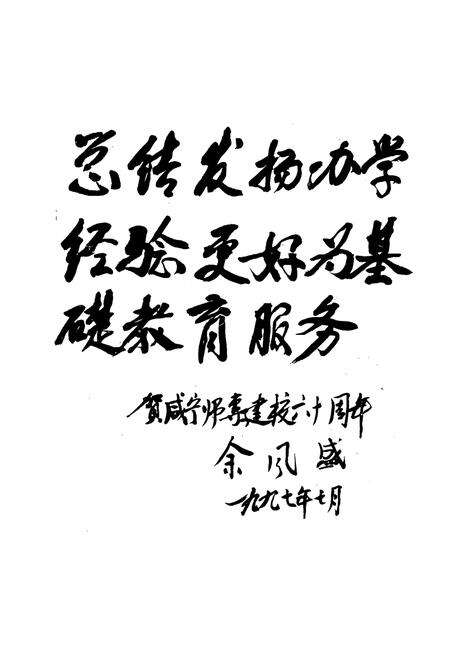 总结发扬办学
经验更好为基
礎教育服务
贺咸宁师专建校六十周年
余风盛
一九九七年七月